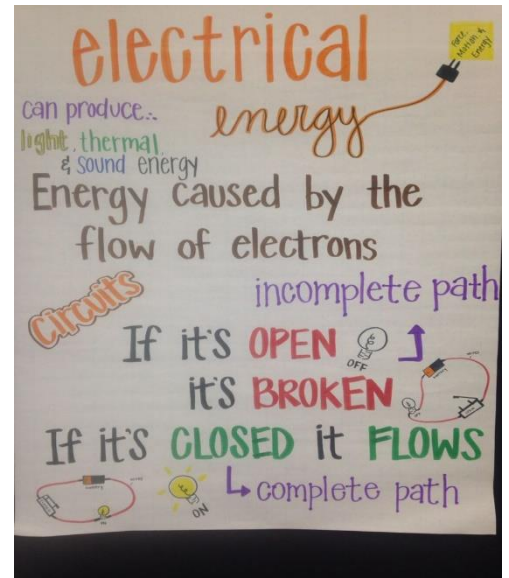 electrical
Force,
Motion, &
Energy
energy
can produce..
light, thermal,
& sound energy
Energy caused by the
flow of electrons
Circuits
incomplete path
If it's OPEN
OFF
it's BROKEN
If it's CLOSED it FLOWS
ON
complete path